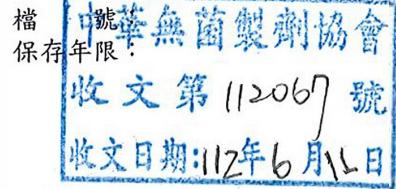 檔 號:
保存年限:
中華無菌製劑協會
收文第 112067 號
收文日期:112年6月 日